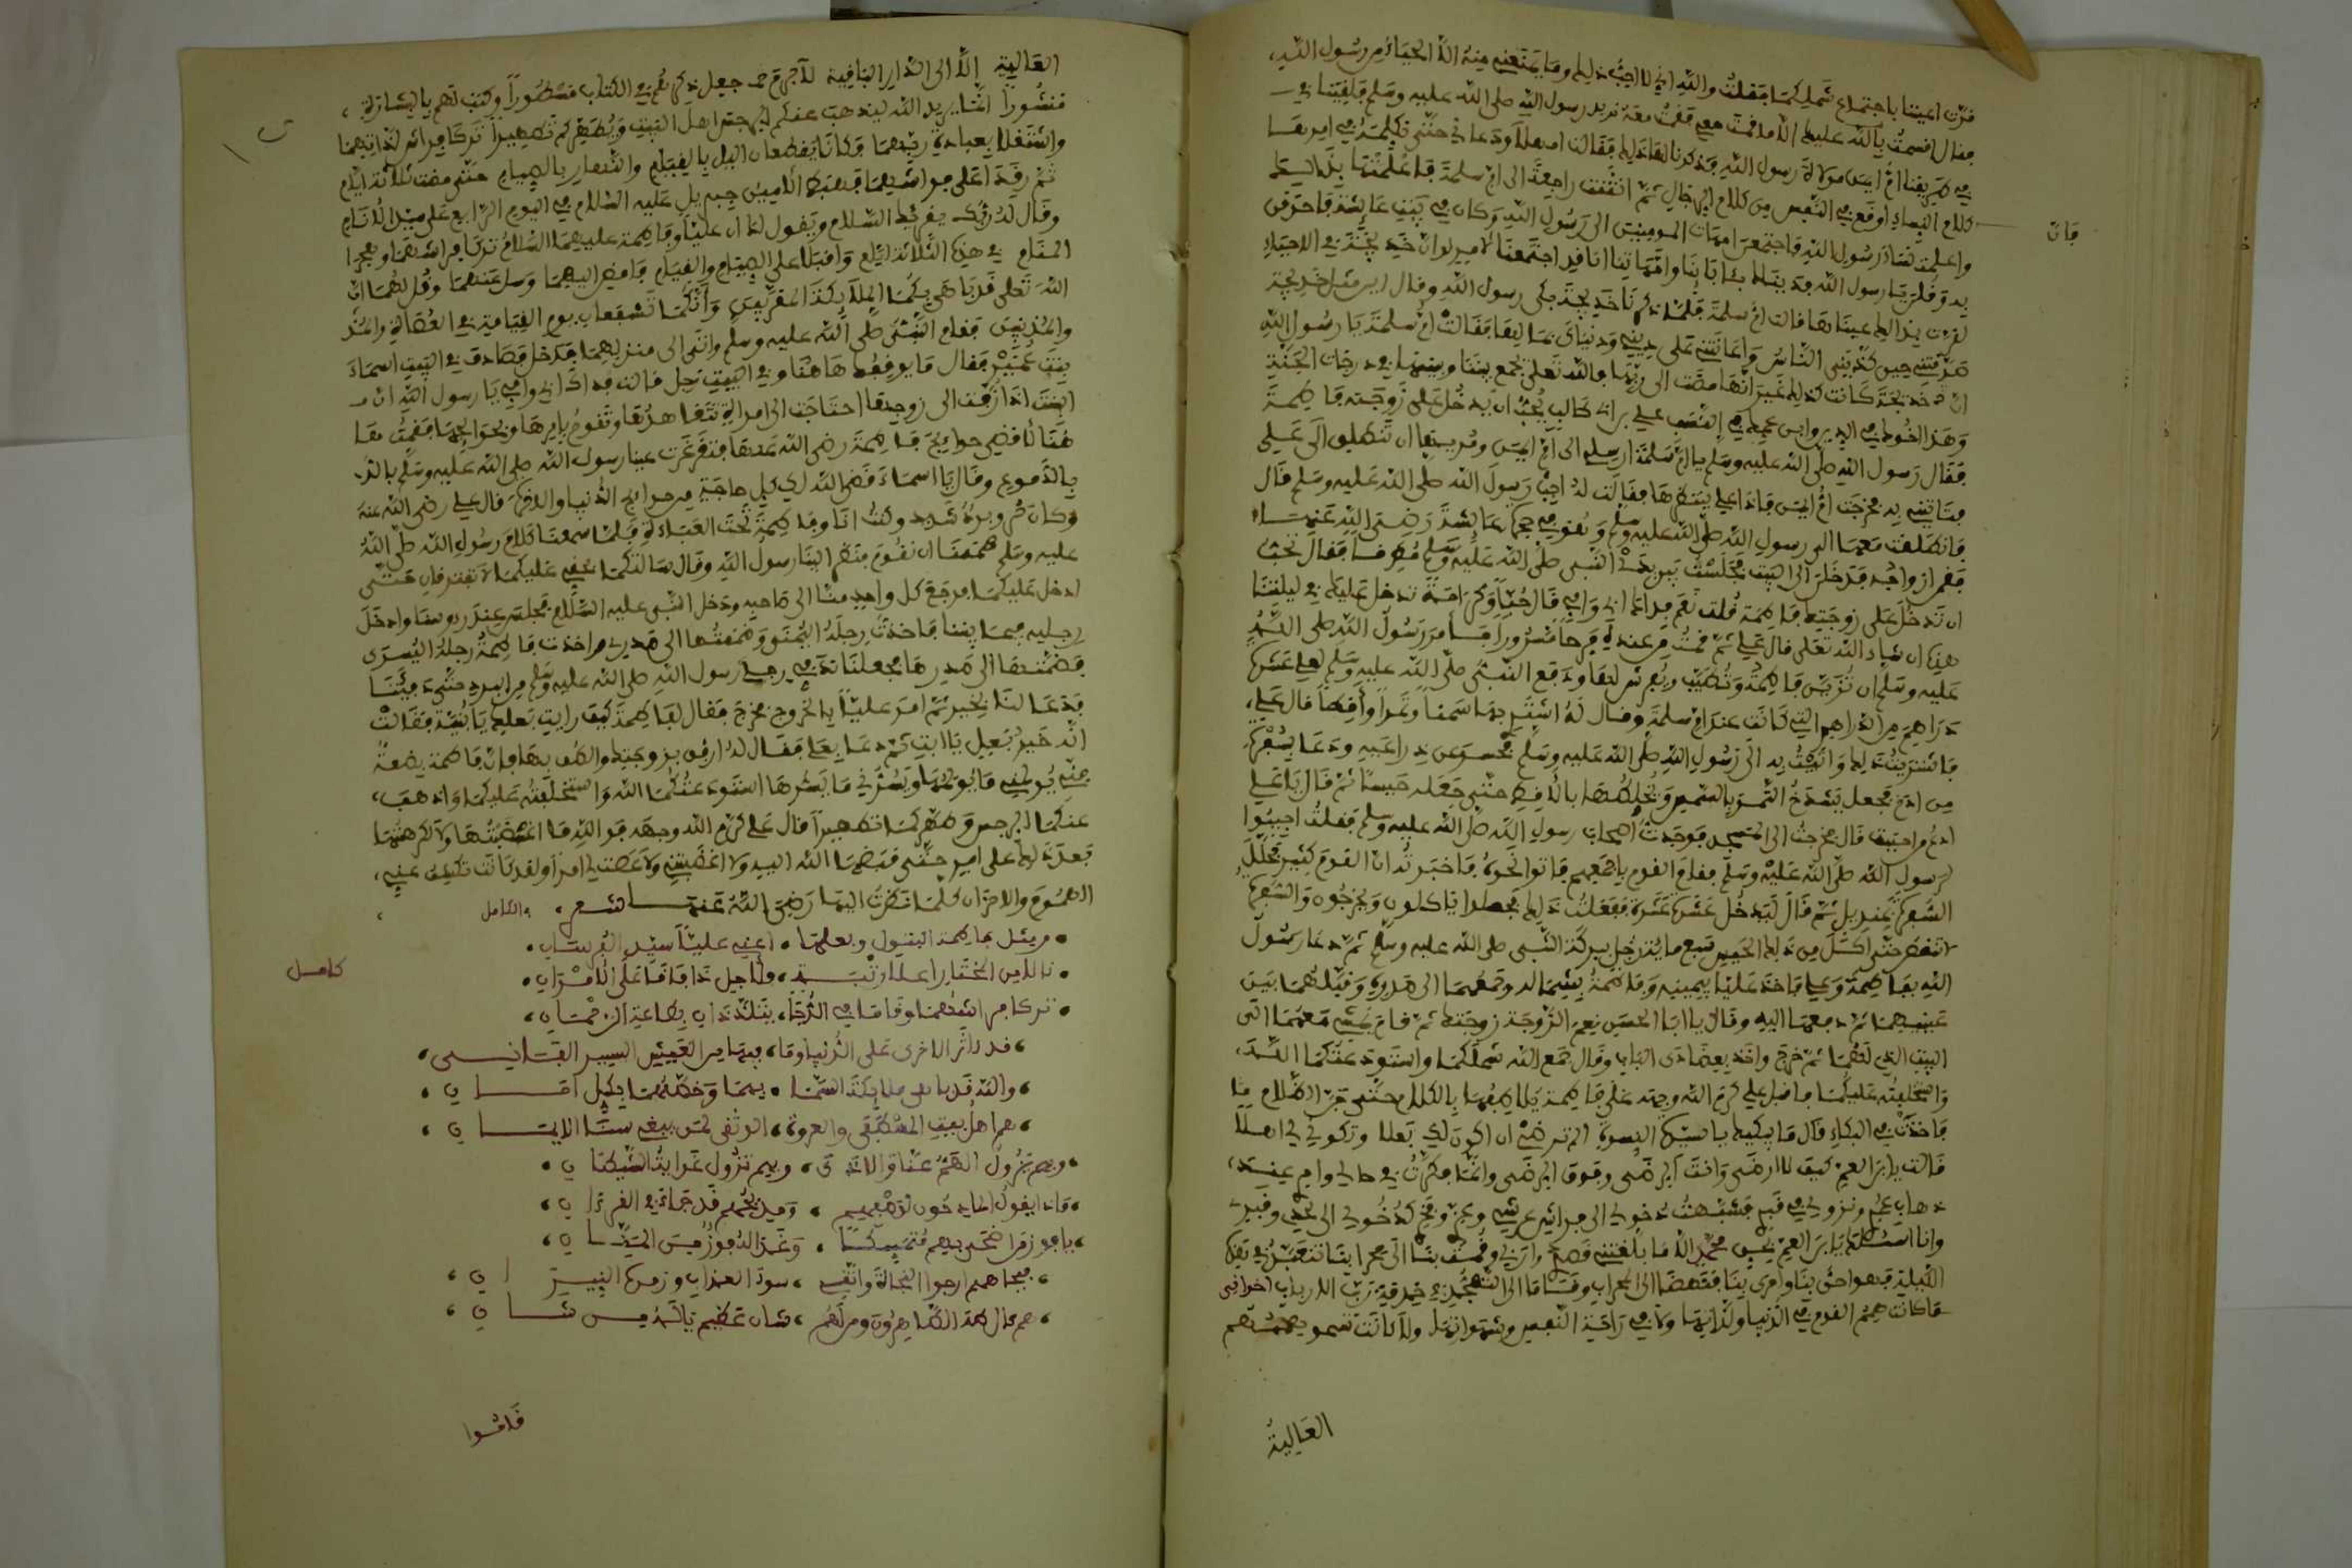 فزت اعيننا باجتماع شملكما فقلت والله اني لا احب ذلك وما يمنعني منه الا الحياء من رسول الله
فقال اقسمت بالله عليك الا ما قمت معي فقمت معه نريد رسول الله صلى الله عليه وسلم فلقينا في
طريقنا ام ايمن مولاة رسول الله فذكرنا لها ذلك فقالت امهلا ودعاني حتى نكلمه في امرها
كلام النساء اوقع في النفس من كلام الرجال ثم انثنت راجعة الى ام سلمة فاعلمتها بذلك
فان
واعلمت نساء رسول الله فاجتمعن امهات المومنين الى رسول الله وكان في بيت عايشة فاحدقن
به وقلن يا رسول الله فديناك بئابائنا وامهاتنا انا قد اجتمعنا لامر لو ان خديجة في الاحياء
لقرت بذلك عيناها قالت ام سلمة فلما ذكرنا خديجة بكى رسول الله وقال اين مثل خديجة
صدقتني حين كذبني الناس واعانتني على ديني ودنياي بمالها فقالت ام سلمة يا رسول الله
ان خديجة كانت كذلك غير انها مضت الى ربها والله تعلى يجمع بيننا وبينها في درجات الجنة
وهذا اخوك في الدين وابن عمك في النسب علي بن ابي طالب يحب ان يدخل على زوجته فاطمة
فقال رسول الله صلى الله عليه وسلم يا ام سلمة ارسلي الى ام ايمن ومريها ان تنطلق الى علي
فتاتيني به فخرجت ام ايمن فاذا علي ينتظرها فقالت له اجب رسول الله صلى الله عليه وسلم قال
فانطلقت معها الى رسول الله صلى الله عليه وسلم وهو في حجرة عايشة رضي الله عنها
فقمن ازواجه فدخلن الى البيت فجلست بين يدي النبي صلى الله عليه وسلم مطرقا فقال تحب
ان تدخل على زوجتك فاطمة قلت نعم فداك ابي وامي قال حبا وكرامة تدخل عليك في ليلتنا
هذه ان شاء الله تعلى قال علي ثم قمت من عنده فرحا مسرورا فامر رسول الله صلى الله
عليه وسلم ان تزين فاطمة وتطيب ويفرش لها ودفع النبي صلى الله عليه وسلم لعلي عشرة
دراهم من الدراهم التي كانت عند ام سلمة وقال له اشتر بها سمنا وتمرا واقطا قال علي
فاشتريت ذلك واتيت به الى رسول الله صلى الله عليه وسلم فحسر عن ذراعيه ودعا بسفرة
من ادم فجعل يشدخ التمر بالسمن ويخلطها بالاقط حتى جعله حيسا ثم قال يا علي
ادع من احببت قال فخرجت الى المسجد فوجدت اصحاب رسول الله صلى الله عليه وسلم فقلت اجيبوا
رسول الله صلى الله عليه وسلم فقام القوم باجمعهم فاتوا نحوه فاخبرته ان القوم كثير فجلل
السفرة بمنديل ثم قال ليدخل عشرة عشرة ففعلت ذلك فجعلوا ياكلون ويخرجون والسفرة
لا تنقص حتى اكل من ذلك الحيس سبع ماية رجل ببركة النبي صلى الله عليه وسلم ثم دعا رسول
الله بفاطمة وعلي فاخذ عليا بيمينه وفاطمة بشماله وضمهما الى صدره وقبلهما بين
عينيهما ثم دفعها اليه وقال يا ابا الحسن نعم الزوجة زوجتك ثم قام يمشي معهما الى
البيت الذي لهما ثم خرج واخذ بعضادتي الباب وقال جمع الله شملكما واستودعتكما الله
واستخلفته عليكما فاقبل علي كرم الله وجهه على فاطمة يلاطفها بالكلام حتى جن الظلام
فاخذت في البكاء قال ما يبكيك يا سيدة النسوة الم ترضي ان اكون لك بعلا وتكوني لي اهلا
قالت يا بن العم كيف لا ارضى وانت الرضى وفوق الرضى وانما فكرت في حالي وامري عند
ذهاب عمري ونزولي في قبري فشبهت دخولي الى فراش عزي وفخري كدخولي الى لحدي وقبري
وانا اسئلك يا بن العم بحق محمد الا ما بلغتني قصدي واربي وقمت بنا الى محرابنا نتعبد في هذه
الليلة فهو احق بنا واحرى بنا فنهضا الى المحراب وقاما الى التهجد في خدمة رب الارباب اخواني
ما كانت همم القوم في الدنيا ولذاتها ولا في راحة النفس وشهواتها ولا كانت تسمو بهممهم
العالية
العالية إلا الى الدار الباقية لا جرم قد جعل ذكرهم في الكتاب مسطورا وكتب لهم بالبشارة
منشورا انما يريد الله ليذهب عنكم الرجس اهل البيت ويطهركم تطهيرا تركا فراش لذاتهما
واشتغلا بعبادة ربهما فكانا يقطعان اليل بالقيام والنهار بالصيام حتى مضت ثلاثة ايام
ثم رقدا على فراشهما فهبط الامين جبريل عليه السلام في اليوم الرابع على سيد الانام
وقال له ربك يقرئك السلام ويقول لك ان عليا وفاطمة عليهما السلام تركا فراشهما وهجرا
المنام في هذه الثلاثة ايام واقبلا على الصيام والقيام فامض اليهما وسل عنهما وقل لهما ان
الله تعلى قد باهى بكما الملائكة المقربين وانكما تشفعان يوم القيامة في العصاة
والمذنبين فقام النبي صلى الله عليه وسلم واتى الى منزلهما فدخل فصادف في البيت اسماء
بنت عميس فقال ما يوقفك هاهنا وفي البيت رجل قالت فداك ابي وامي يا رسول الله ان
البنت اذا زفت الى زوجها احتاجت الى امراة تتعاهدها وتقوم بامرها وبحوائجها فقمت
هنا لاقضي حوايج فاطمة رضي الله عنها فتغرغرت عينا رسول الله صلى الله عليه وسلم
بالدموع وقال يا اسماء قضى الله لك كل حاجة من حوايج الدنيا والاخرة قال علي رضي الله عنه
وكان قر وبرد شديد وكنت انا وفاطمة تحت العباءة فلما سمعنا كلام رسول الله صلى الله
عليه وسلم هممنا ان نقوم فنظر الينا رسول الله وقال سالتكما بحقي عليكما لا تفترقان حتى
ادخل عليكما فرجع كل واحد منا الى صاحبه ودخل النبي عليه السلام فجلس عند رءوسنا وادخل
رجليه فيما بيننا فاخذت رجله اليمنى وضممتها الى صدري واخذت فاطمة رجله اليسرى
فضمتها الى صدرها فجعلنا ندفئ رجلي رسول الله صلى الله عليه وسلم من البرد حتى دفئتا
فدعا لنا بخير ثم امر عليا بالخروج فخرج فقال لفاطمة كيف رايت بعلك يا بنية فقالت
انه خير بعل يا ابت ثم دعا بعلي فقال له ارفق بزوجتك والطف بها فان فاطمة بضعة
مني يؤلمني ما يؤلمها ويسرني ما يسرها استودعتكما الله واستخلفته عليكما واذهب
عنكما الرجس وطهركما تطهيرا قال علي كرم الله وجهه فوالله ما اغضبتها ولا اكرهتها
بعد ذلك على امر حتى قبضها الله اليه ولا اغضبتني ولا عصت لي امرا ولقد كانت تكشف عني
الهموم والاحزان كلما نظرت اليها رضي الله عنهما شعر والكامل
من مثل فاطمة البتول وبعلها اعني عليا سيد الفرسان
كامل
نالا من المختار اعلا رتبة ولاجل ذا فاقا على الاقران
تركا فراشهما وقاما في الدجا يتلذذان بطاعة الرحمان
قد ءاثر الاخرى على الدنيا وما فيها من العيش اليسير الفاني
والله قد باهى ملايكة السما بهما وخطهما بكل امان
هم اهل بيت المصطفى والعروة الوثقى لمن يبغي سنا الايمان
وبهم يزول الهم عنا والاذى وبهم تزول غواية الشيطان
ماذا يقول المادحون لوصفهم ومديحهم قد جاء في القرءان
يا فوز من اضحى بهم متمسكا وغدا الفوز من المنان
فبجاههم ارجوا النجاة واتقي سوء العذاب وزفرة النيران
هم ءال طه الطاهرون ومن لهم شان عظيم ياله من شان
فدقوا